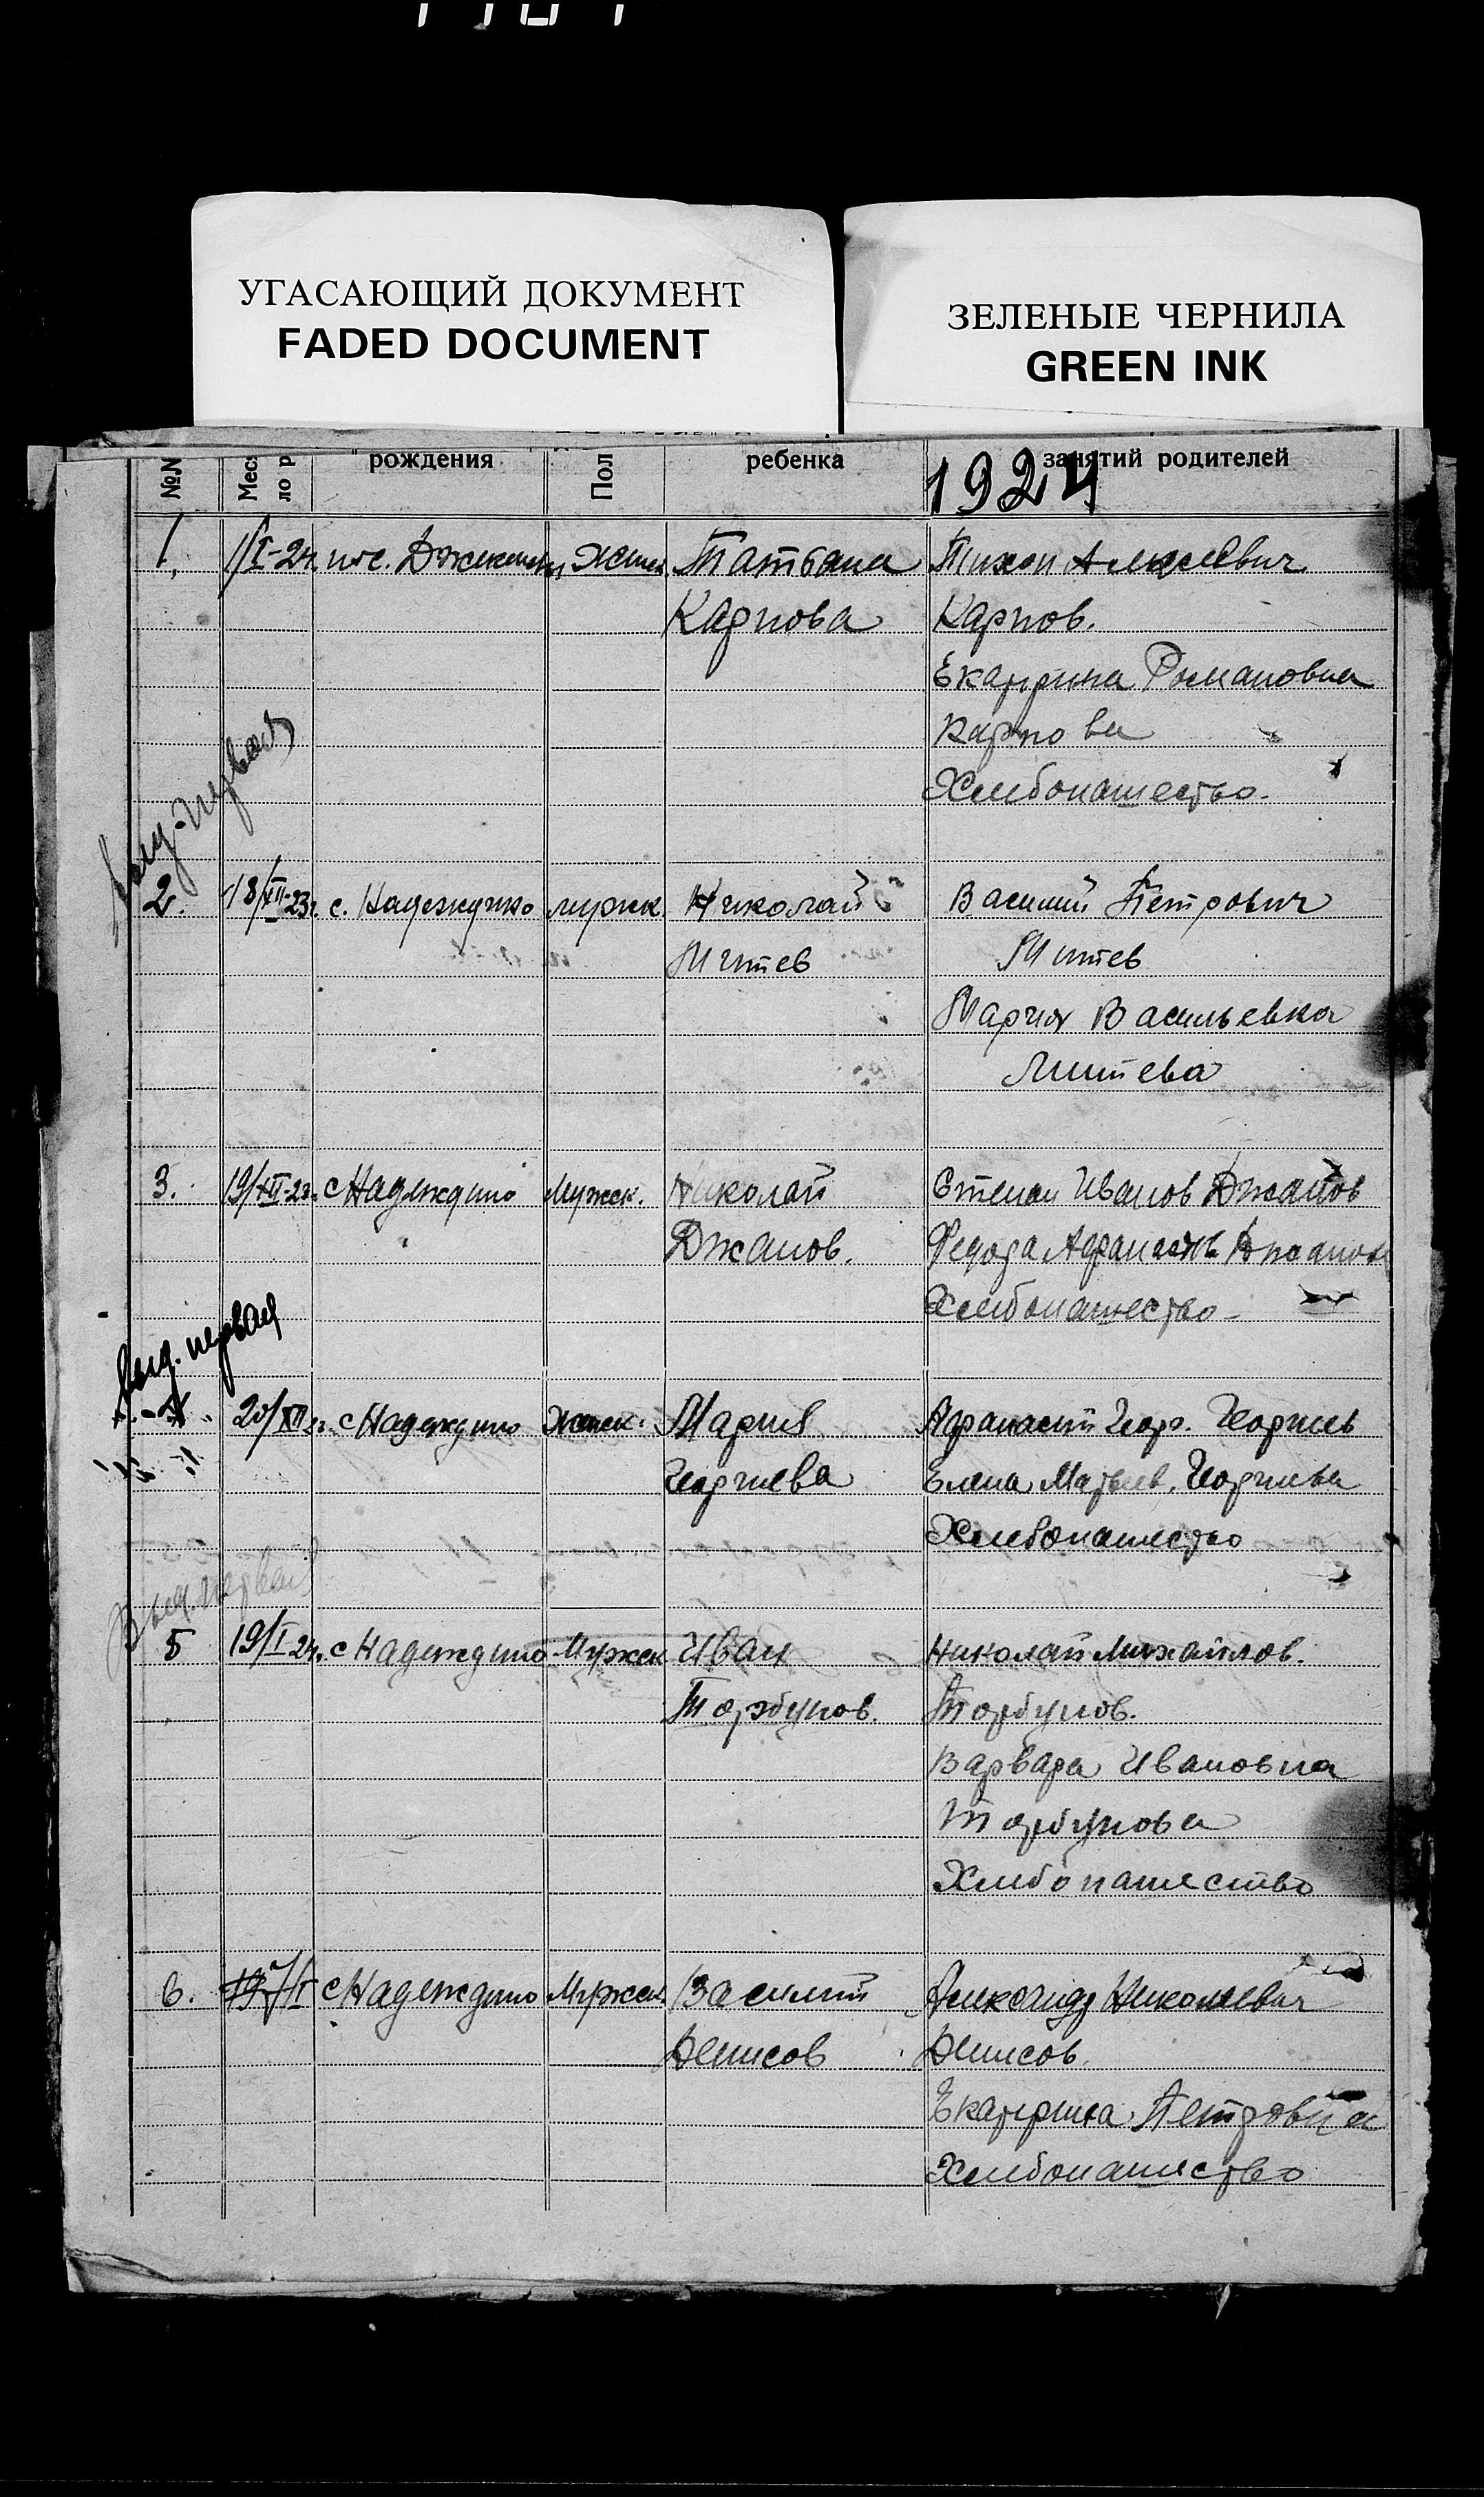 УГАСАЮЩИЙ ДОКУМЕНТ
FADED DOCUMENT
ЗЕЛЕНЫЕ ЧЕРНИЛА
GREEN INK
№№ Меся ло р рождения Пол ребенка занятий родителей
1924
1. 1/I-24. пос. Татьяна Тихон Алексеевич
Карпова Карпов.
Екатерина Романовна
Карпова
Хлебопашество.
Выд. первая
2. 18/XII-23г. с. Надеждино мужск. Николай Василий Петрович
Митев Митев
Мария Васильевна
Митева
3. 19/XII-23. с Надеждино Мужск. Николай Степан Иванов Джапов
Джапов. Федора Афанасьев Джапов
Хлебопашество-
Выд. первая
20/XII с Надеждино Женск. Мария Афанасий Геор. Георгиев
Георгиева Елена Матвеев. Георгиева
Хлебопашество
Выд. первая
5 19/I 24. с Надеждино Мужск Иван Николай Михайлов.
Торбунов. Торбунов.
Варвара Ивановна
Торбунова
Хлебопашество
6. 7/I с Надеждино Мужск. Василий Александр Николаевич
Денисов Денисов.
Екатерина Петровна
Хлебопашество